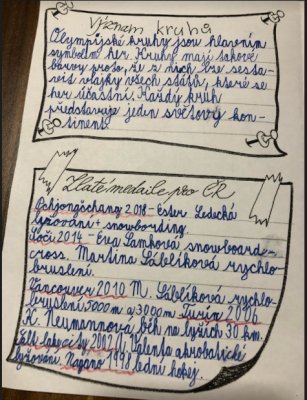 Význam kruhů
Olympijské kruhy jsou hlavním
symbolem her. Kruhy mají takové
barvy proto, že z nich lze sesta-
vit vlajky všech států, které se
her účastní. Každý kruh
představuje jeden světový kon-
tinent.
Zlaté medaile pro ČR
Pchjongčchang 2018 - Ester Ledecká
lyžování i snowbording.
Soči 2014 - Eva Samková snowboard-
cross. Martina Sáblíková rychlo-
bruslení.
Vancouver 2010 M. Sáblíková rychlo-
bruslení 5000 m a 3000 m Turín 2006
K. Neumannová, běh na lyžích 30 km.
Salt Lake city 2002 A. Valenta akrobatické
lyžování. Nagano 1998 lední hokej.